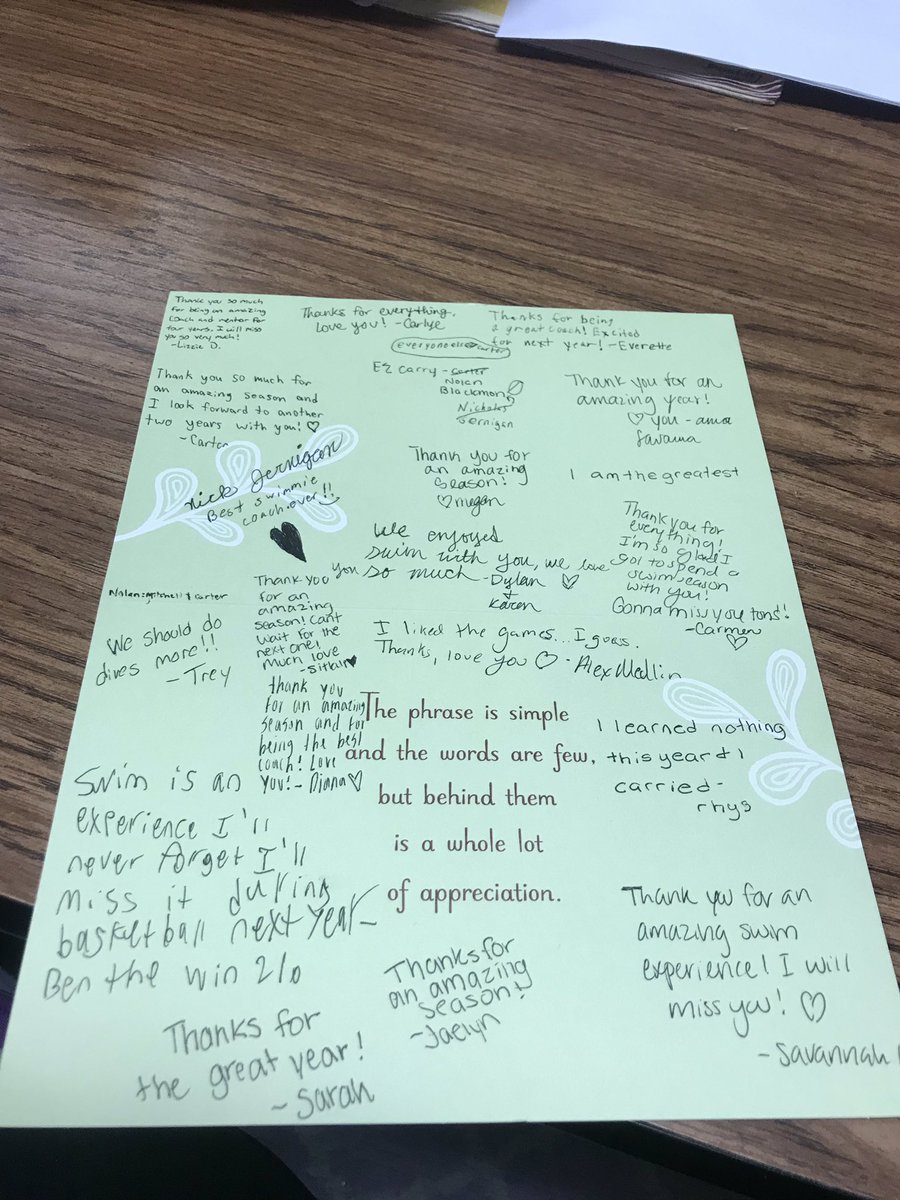 Thank you so much
for being an amazing
coach and mentor for
four years. I will miss
you so very much!
-Lizzie D.
Thanks for everything.
Love you! -Carlye
Thanks for being
a great coach! Excited
for next year! -Everette
everyone else carter
EZ carry - carter
Nolan
Blackmon
Nicholas
Jernigan
Thank you so much for
an amazing season and
I look forward to another
two years with you! ♡
-Carter
Thank you for an
amazing year!
♡ you - ama
Savama
Nick Jernigan
Best swimmie
coach ever!!
Thank you for
an amazing
season!
♡ megan
I am the greatest
We enjoyed
swim with you, we love
you so much -Dylan ♡
&
Karen
Thank you for
everything!
I'm so glad I
got to spend a
swim season
with you!
Gonna miss you tons!
-Carmen
♡
Nolan : Mitchell & Carter
We should do
dives more!!
-Trey
Thank you
for an
amazing
season! Cant
wait for the
next one!
Much love
I liked the games... I guess.
Thanks, love you ♡ - Alex Medlin
thank you
for an amazing
season and for
being the best
coach! Love
you! - Diana ♡
The phrase is simple
and the words are few,
but behind them
is a whole lot
of appreciation.
I learned nothing
this year & I
carried -
rhys
Swim is an
experience I'll
never forget I'll
miss it during
basketball next year -
Ben the win 210
Thanks for
an amazing
season!
-Jaelyn
Thank you for an
amazing swim
experience! I will
miss you! ♡
-Savannah
Thanks for
the great year!
-Sarah